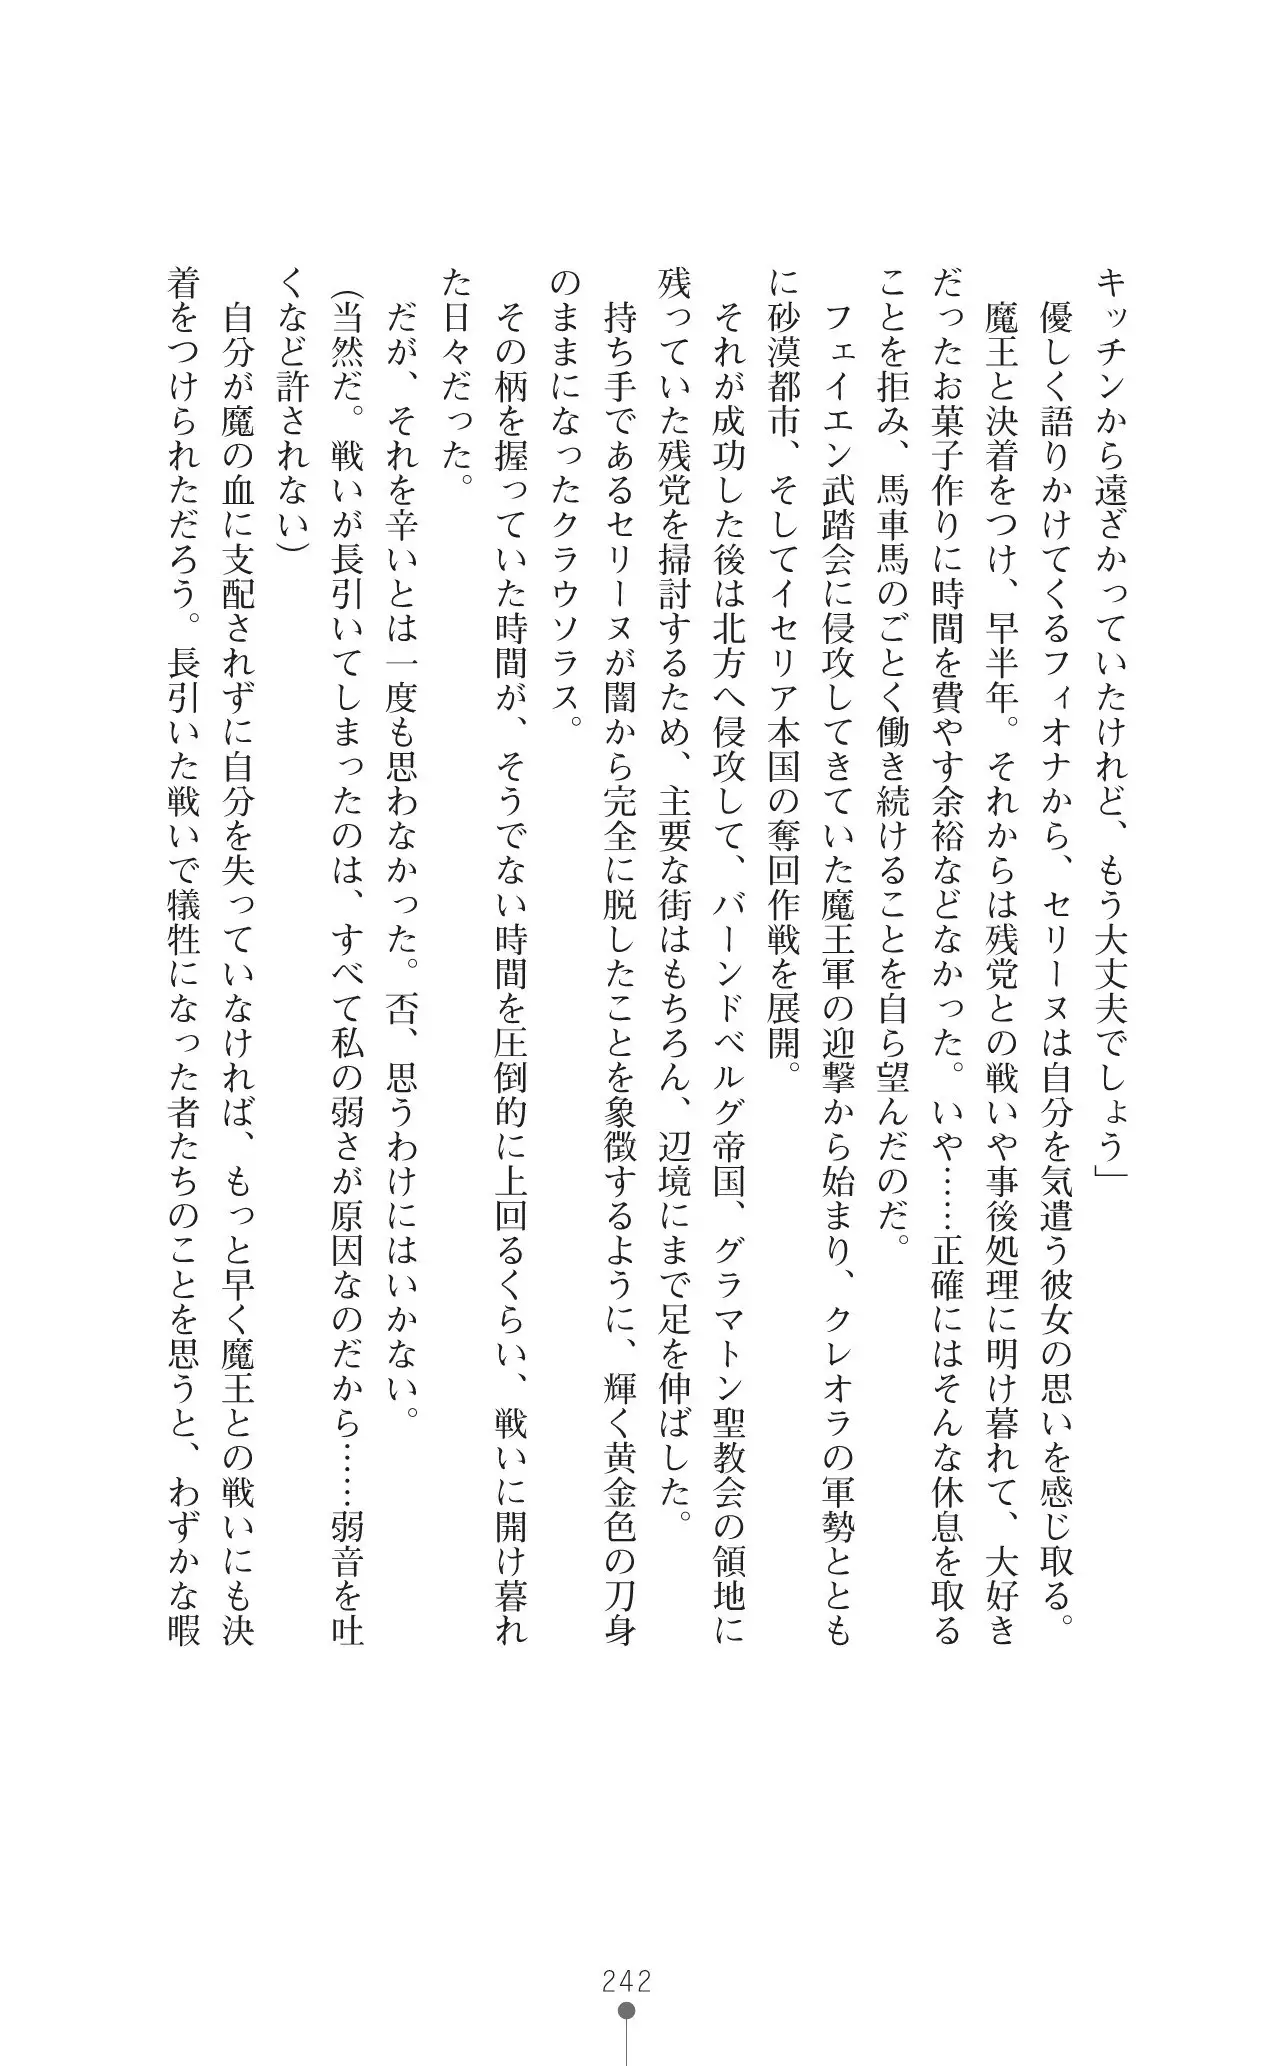 キッチンから遠ざかっていたけれど、もう大丈夫でしょう」
　優しく語りかけてくるフィオナから、セリーヌは自分を気遣う彼女の思いを感じ取る。
　魔王と決着をつけ、早半年。それからは残党との戦いや事後処理に明け暮れて、大好き
だったお菓子作りに時間を費やす余裕などなかった。いや……正確にはそんな休息を取る
ことを拒み、馬車馬のごとく働き続けることを自ら望んだのだ。
　フェイエン武踏会に侵攻してきていた魔王軍の迎撃から始まり、クレオラの軍勢ととも
に砂漠都市、そしてイセリア本国の奪回作戦を展開。
　それが成功した後は北方へ侵攻して、バーンドベルグ帝国、グラマトン聖教会の領地に
残っていた残党を掃討するため、主要な街はもちろん、辺境にまで足を伸ばした。
　持ち手であるセリーヌが闇から完全に脱したことを象徴するように、輝く黄金色の刀身
のままになったクラウソラス。
　その柄を握っていた時間が、そうでない時間を圧倒的に上回るくらい、戦いに開け暮れ
た日々だった。
　だが、それを辛いとは一度も思わなかった。否、思うわけにはいかない。
（当然だ。戦いが長引いてしまったのは、すべて私の弱さが原因なのだから……弱音を吐
くなど許されない）
　自分が魔の血に支配されずに自分を失っていなければ、もっと早く魔王との戦いにも決
着をつけられただろう。長引いた戦いで犠牲になった者たちのことを思うと、わずかな暇
242